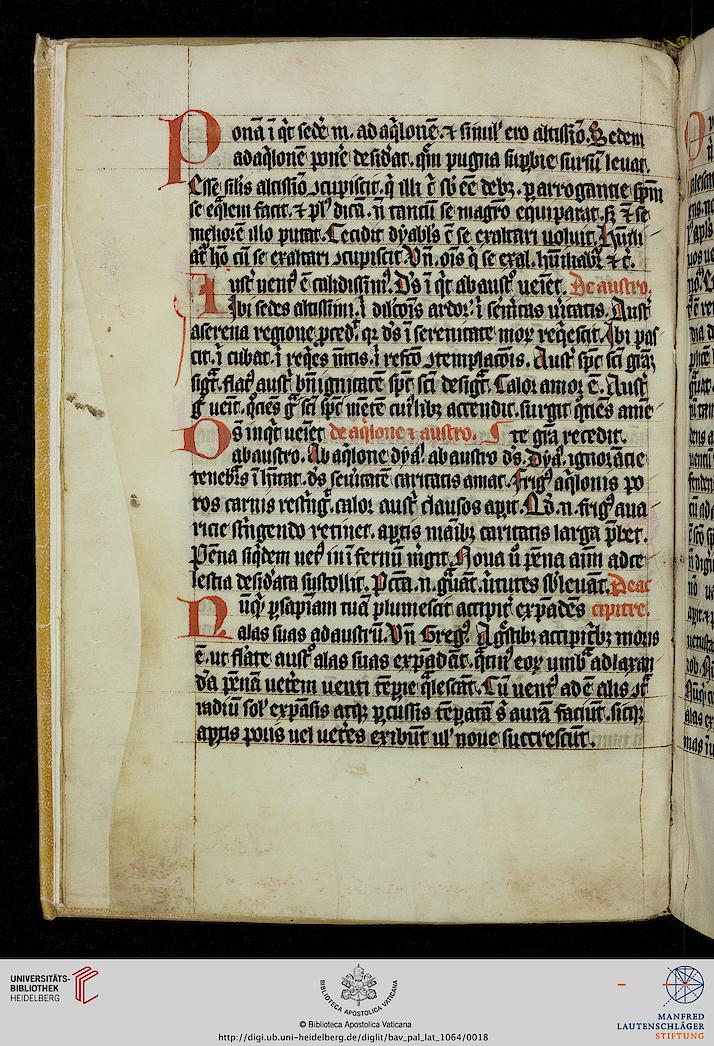 Ponā ī q̄t sedē m. ad aq̄lonē. ⁊ simil' ero altissīo. Sedem
ad aq̄lonē ponē desid'at. q̄m pugna sup̄bie sursū leuat.
Esse silis altissīo ꝯcupiscit. q̄ illi ē sb' eē debꝫ. p arrogantie sp̄m
se eq̄lem facit. ⁊ pl' dicā. n̄ tantū se magr̄o equiparat. sꝫ ⁊ se
meliorē illo putat. Cecidit dyabl's ē se exaltari uoluit. Hūili
at' hō cū se exaltari ꝯcupiscit. Vn̄. ois q̄ se exal. hūiliabr̄ ⁊ c̄.
Aust' uent' ē calidissim'. D's ī q̄t ab aust' ueiet. De austro.
Ibi sedes altissimi. ī ardor'. ī s̄enitas uītatis. Aust'
a serena regione p̄ced'. qꝛ d's ī serenitate moꝝ req̄escit. Ibi pas
cit. ī cubat. ī req̄es ītatis. ī refcō ꝯtemplacōis. Aust' sp̄c sc̄i grāꝫ
sigt̄. flat' aust' bn̄ignitatē sp̄c sc̄i desigt̄. Calor amor ē. Aust'
g' ueīt. q̄cies g' sc̄i sp̄c mētē cuil'ibꝫ accendit. surgit q̄cies amē
D's inq̄t ueiet de aq̄lone ⁊ austro. te grā recedit.
ab austro. Ab aq̄lone dya'. ab austro d's. Dya'. ignorācie
tenebris ī hītat. d's serēitatē caritatis amat. Frig' aq̄lonis po
ros carnis restīḡ. calor aust' clausos apit. Qd. n. frig' aua
ricie stīgendo retinet. aptis maībꝫ caritatis larga p̄bet.
Penna siq̄dem uet' in īfernū mgit. Noua u' penna aīm ad ce
lestia desid'ata sustollit. Pcc̄a. n. g'uāt. uītutes sb'leuāt. De ac
Nūq̄ p sapīam tuā plumescit accipit' expādēs cipitre.
alas suas ad austrū. Vn̄ Greg'. Ag'stibꝫ accipit'bꝫ moris
ē. ut flāte aust' alas suas expādāt. q̄tin' eoꝝ mīb' ad laxan
dā pennā uetēm uenti tēpe q̄lescāt. Cū uent' ad ē alis ꝯt'
radiū sol' expāsis atqꝫ pcussis tēpatā s' aurā faciūt. sicqꝫ
aptis poris uel uetes exibūt ul' noue succrescūt.
UNIVERSITÄTS-
BIBLIOTHEK
HEIDELBERG
BIBLIOTECA APOSTOLICA VATICANA
© Biblioteca Apostolica Vaticana
http://digi.ub.uni-heidelberg.de/diglit/bav_pal_lat_1064/0018
MANFRED
LAUTENSCHLÄGER
STIFTUNG